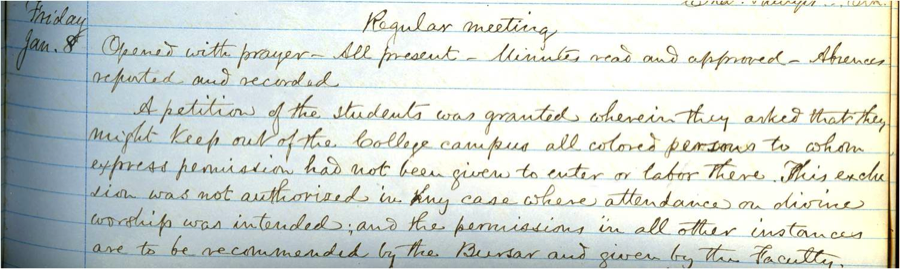 Friday
Jan. 8
Regular meeting
Opened with prayer – All present – Minutes read and approved – Absences
reported and recorded
A petition of the students was granted wherein they asked that they
might keep out of the College campus all colored persons to whom
express permission had not been given to enter or labor there. This exclu
sion was not authorised in any case where attendance on divine
worship was intended; and the permissions in all other instances
are to be recommended by the Bursar and given by the Faculty.